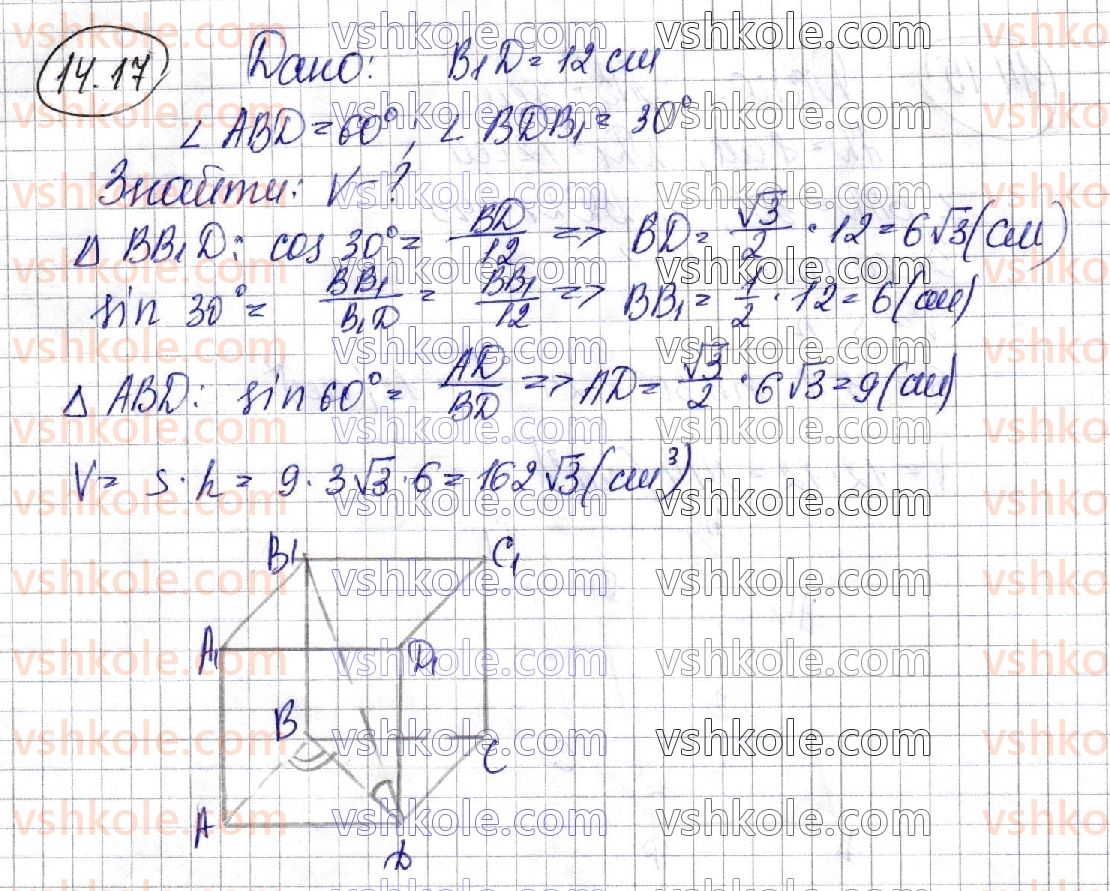 14.17 Дано: B₁D = 12 см
∠ ABD = 60°, ∠ BDB₁ = 30°
Знайти: V - ?
△ BB₁D: cos 30° = BD/12 => BD = √3/2 · 12 = 6√3 (см)
sin 30° = BB₁/B₁D = BB₁/12 => BB₁ = 1/2 · 12 = 6 (см)
△ ABD: sin 60° = AD/BD => AD = √3/2 · 6√3 = 9 (см)
V = S · h = 9 · 3√3 · 6 = 162√3 (см³)
B₁ C₁
A₁ D₁
B C
A D
vshkole.com